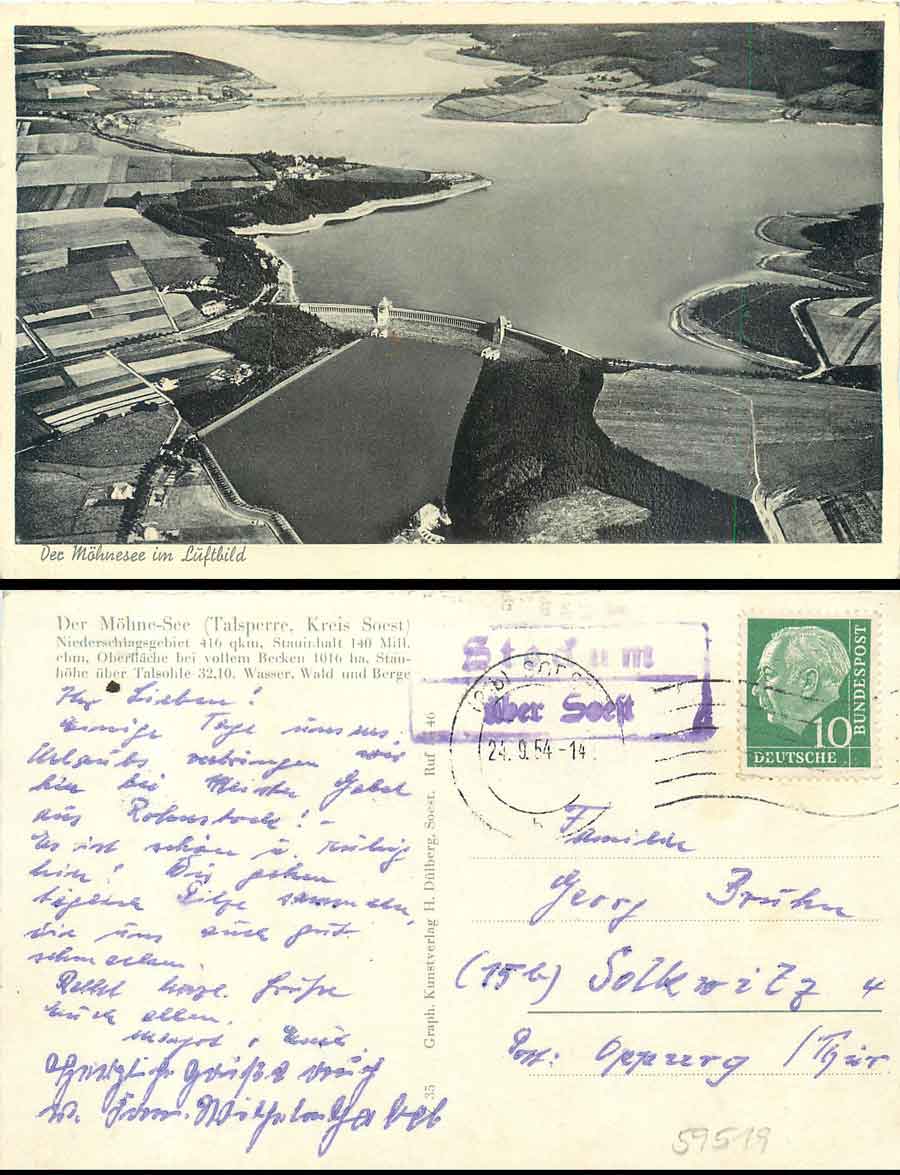 Der Möhnesee im Luftbild
Der Möhne-See (Talsperre, Kreis Soest)
Niederschlagsgebiet 416 qkm, Stauinhalt 140 Mill.
cbm, Oberfläche bei vollem Becken 1016 ha, Stau-
höhe über Talsohle 32.10. Wasser, Wald und Berge
Ihr Lieben!
Einige Tage unseres
Urlaubs verbringen wir
hier bei
aus Rohnstock! -
Es ist schön u. ruhig
hier! Wir gehen
Pilze sammeln,
die uns auch gut
schmecken.
Recht herzl. Grüße
Euch allen.
Herzliche Grüße auch
v. Fam. Wilhelm Habel
Graph. Kunstverlag H. Dülberg, Soest. Ruf 46
35
über Soest
24.9.54-14
10
DEUTSCHE
BUNDESPOST
Familie
Georg Bruhn
(15b) Solkwitz 4
Post: Oppurg /Thür
59519